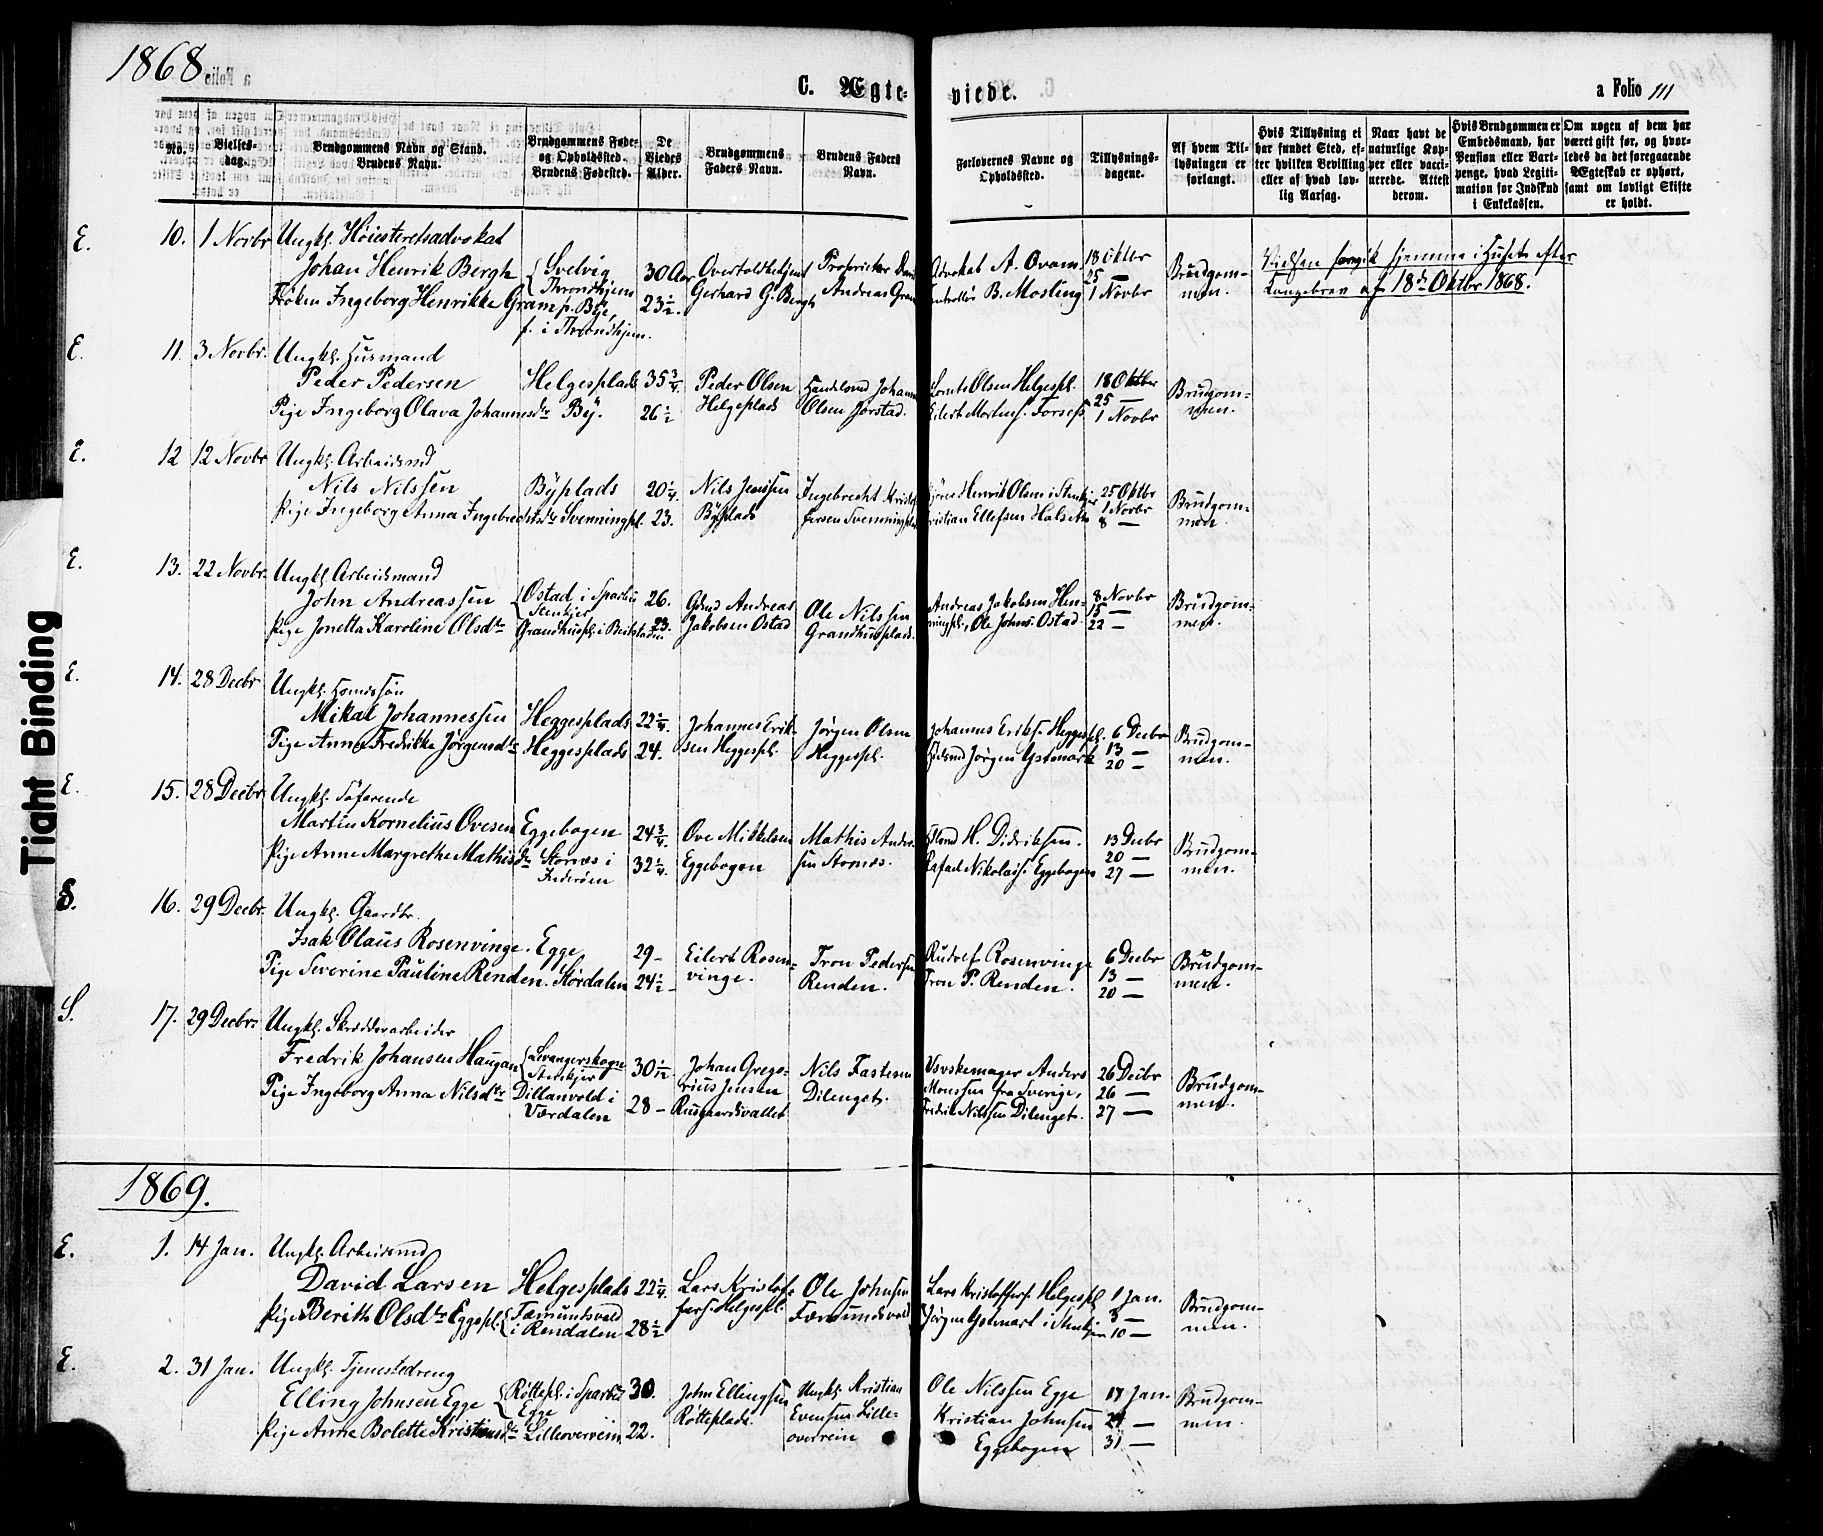 1868
C. Ægte-
viede.
a Folio 111
No.
Vielses-
dag.
Brudgommens Navn og Stand.
Brudens Navn.
Brudgommens Føde-
og Opholdssted.
Brudens Fødested.
De
Viedes
Alder.
Brudgommens
Faders Navn.
Brudens Faders
Navn.
Forlovernes Navne og
Opholdssted.
Tillysnings-
dagene.
Af hvem Til-
lysningen er
forlangt.
Hvis Tillysning ei
har fundet Sted, ef-
ter hvilken Bevilling
eller af hvad lov-
lig Aarsag.
Naar havt de
naturlige Kop-
per eller vacci-
nerede. Attest
derom.
Hvis Brudgommen er
Embedsmand, har
Pension eller Vart-
penge, hvad Legiti-
mation for Indskud
i Enkekassen.
Om nogen af dem har
været gift før, og hvor-
ledes da det foregaaende
Ægteskab er ophørt,
samt om lovligt Skifte
er holdt.
E. 10. 1 Novbr Ungk. Høiesteretsadvokat
Johan Henrik Bergh
Frøken Ingeborg Henrikke Gram
Svelvig
Throndhjem
p. Bye,
f. i Throndhjem.
30 Aar
23 1/2.
Overtoldbetjent
Gerhard G. Bergh
Proprietær
Andreas Gram
Advokat A. Qvam
B. Mosling
18 Oktbr
25 —
1 Novbr
Brudgom-
men.
Vielsen foregik hjemme i Huset efter
Kongebrev af 18de Oktbr 1868.
E. 11. 3 Novbr. Ungk. Husmand
Peder Pedersen
Pige Ingeborg Olava Johannesdtr
Helgesplads
By.
35 3/4.
26 1/2
Peder Olsen
Helgesplads
Johannes
Olsen Jørstad.
Tomte Olsen Helgespl.
Eilert Mortens. Forseth
18 Oktbr
25 —
1 Novbr
Brudgom-
men.
E. 12 12 Novbr Ungk. Arbeidsmd
Nils Nilssen
Pige Ingeborg Anna Ingebrechtsdtr
Byplads
Svenningpl.
20 1/4.
23.
Nils Jenssen
Byplads
Ingebrecht Kristof-
fersen Svenningplads
Henrik Olsen i Stenkjer
Kristian Ellefsen Halseth
25 Oktbr
1 Novbr
8 —
Brudgom-
men
E. 13. 22 Novbr. Ungk. Arbeidsmand
John Andreassen
Pige Jonetta Karoline Olsdtr
Østad i Sparbu
Stenkjer
Grandhuspl. i Beitstaden
26.
23.
Gbmd Andreas
Jakobsen Østad
Ole Nilssen
Grandhusplads.
Andreas Jakobsen Hen-
ningpl., Ole Johns. Østad.
8 Novbr
15 —
22 —
Brudgom-
men.
E. 14. 28 Decbr Ungk. Huusmdssøn
Mikal Johannessen
Pige Anna Fredrikke Jørgensdtr
Heggesplads
Heggesplads
22 1/4.
24.
Johannes Erik-
sen Heggespl.
Jørgen Olsen
Heggespl.
Johannes Eriks. Heggespl.
Jørgen Ystmark
6 Decbr
13 —
20 —
Brudgom-
men.
E. 15. 28 Decbr Ungk. Søfarende
Martin Kornelius Ovesen
Pige Anne Margrethe Mathisdtr
Eggebogen
Stornes i
Inderøen
24 3/4.
32 1/4.
Ove Mikkelsen
Eggebogen
Mathis Ander-
sen Stornes.
H. Didriksen.
Rafael Nikolais. Eggebogen
13 Decbr
20 —
27 —
Brudgom-
men.
S. 16. 29 Decbr. Ungk. Gaardbr.
Isak Olaus Rosenvinge.
Pige Severine Pauline Renden.
Egge
Størdalen
29 –
24 1/2 –
Eilert Rosen-
vinge.
Tron Pedersen
Renden.
Rudolf Rosenvinge
Tron P. Renden.
6 Decbr
13 —
20 —
Brudgom-
men.
S. 17. 29 Decbr. Ungk. Skrædderarbeider
Fredrik Johansen Haugan
Pige Ingeborg Anna Nilsdtr
Levangerskogn
Stenkjer
Dillanvold i
Værdalen
30 1/12
28 –
Johan Grego-
rius Jensen
Ruugaardsvallet
Nils Fastesen
Dilenget.
Væskemager Anders
Monssen fra Sverige,
Fredrik Nilssen Dilenget.
26 Decbr
26 —
27 —
Brudgom-
men.
1869.
E. 1. 14 Jan. Ungk. Arbeidsmd
David Larsen
Pige Berith Olsdtr Eggepl.
Helgesplads
Fæmundsvold
i Rendalen
22 1/4.
28 1/2
Lars Kristof-
fers. Helgespl.
Ole Johnsen
Fæmundsvold
Lars Kristoffers. Helgespl.
Jørgen Ystmark i Stenkjer
1 Jan.
3 —
10 —
Brudgom-
men.
E. 2. 31 Jan. Ungk. Tjenestedreng
Elling Johnsen Egge
Pige Anne Bolette Kristiansdtr
Røttespl. i Sparbu
Egge
Lilleoverrein
30.
22.
John Ellingsen
Røtteplads.
Ungk. Kristian
Evensen Lille-
overrein
Ole Nilssen Egge
Kristian Johnsen
Eggebogen
17 Jan.
24 —
31 —
Brudgom-
men.
Tight Binding